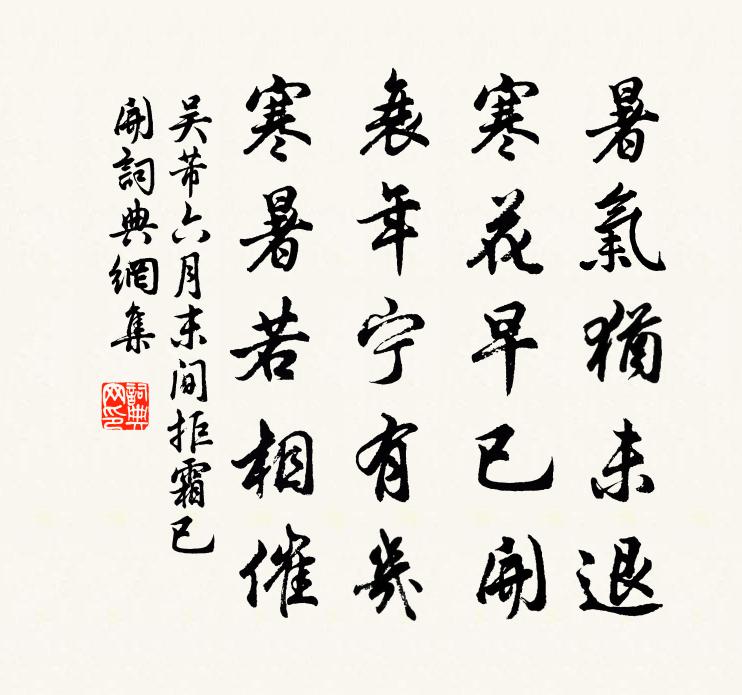 暑氣猶未退
寒花早已開
衰年宁有幾
寒暑若相催
吴芾六月末间拒霜已
開詞典網集
詞典网印